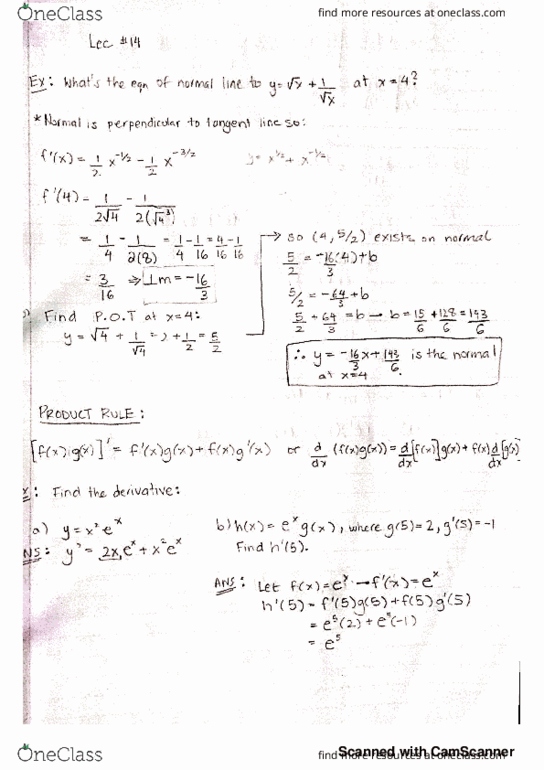 OneClass
find more resources at oneclass.com
Lec #14
Ex: What's the eqn of normal line to y=√x + 1/√x at x=4?
*Normal is perpendicular to tangent line so:
f'(x) = 1/2 x^-1/2 - 1/2 x^-3/2
y = x^1/2 + x^-1/2
f'(4) = 1/(2√4) - 1/(2(√4³))
= 1/4 - 1/2(8) = 1/4 - 1/16 = 4/16 - 1/16
= 3/16 ⇒ ⊥m = -16/3
Find P.O.T at x=4:
y = √4 + 1/√4 = 2 + 1/2 = 5/2
→ so (4, 5/2) exists on normal
5/2 = -16/3(4) + b
5/2 = -64/3 + b
5/2 + 64/3 = b → b = 15/6 + 128/6 = 143/6
∴ y = -16/3 x + 143/6 is the normal
at x=4.
PRODUCT RULE:
[f(x)g(x)]' = f'(x)g(x) + f(x)g'(x) or d/dx (f(x)g(x)) = d/dx[f(x)]g(x) + f(x) d/dx[g(x)]
: Find the derivative:
a) y = x²e^x
NS: y' = 2x e^x + x²e^x
b) h(x) = e^x g(x), where g(5) = 2, g'(5) = -1
Find h'(5).
ANS: Let f(x) = e^x → f'(x) = e^x
h'(5) = f'(5)g(5) + f(5)g'(5)
= e^5(2) + e^5(-1)
= e^5
OneClass
find more resources at oneclass.com
Scanned with CamScanner